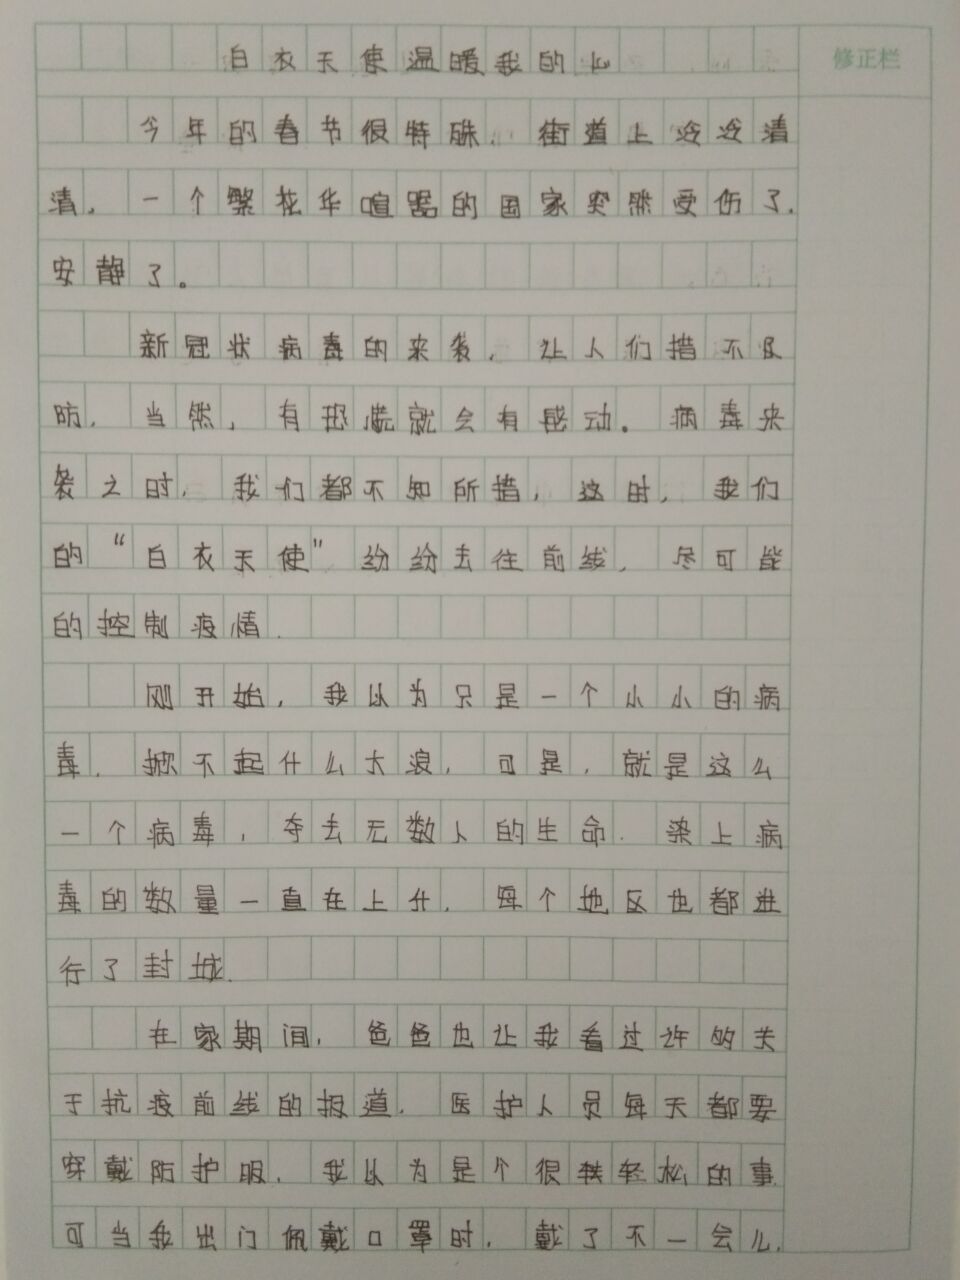 白衣天使温暖我的心
修正栏
今年的春节很特殊，街道上冷冷清
清，一个繁花华喧嚣的国家突然受伤了，
安静了。
新冠状病毒的来袭，让人们措不及
防，当然，有恐慌就会有感动。病毒来
袭之时，我们都不知所措，这时，我们
的“白衣天使”纷纷去往前线，尽可能
的控制疫情．
刚开始，我以为只是一个小小的病
毒，掀不起什么大浪，可是，就是这么
一个病毒，夺去无数人的生命．染上病
毒的数量一直在上升，每个地区也都进
行了封城．
在家期间，爸爸也让我看过许的关
于抗疫前线的报道．医护人员每天都要
穿戴防护服，我以为是个很轶轻松的事
可当我出门佩戴口罩时，戴了不一会儿，